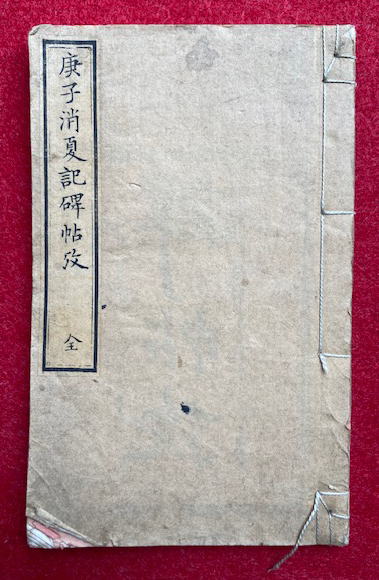 庚子消夏記碑帖攷
全